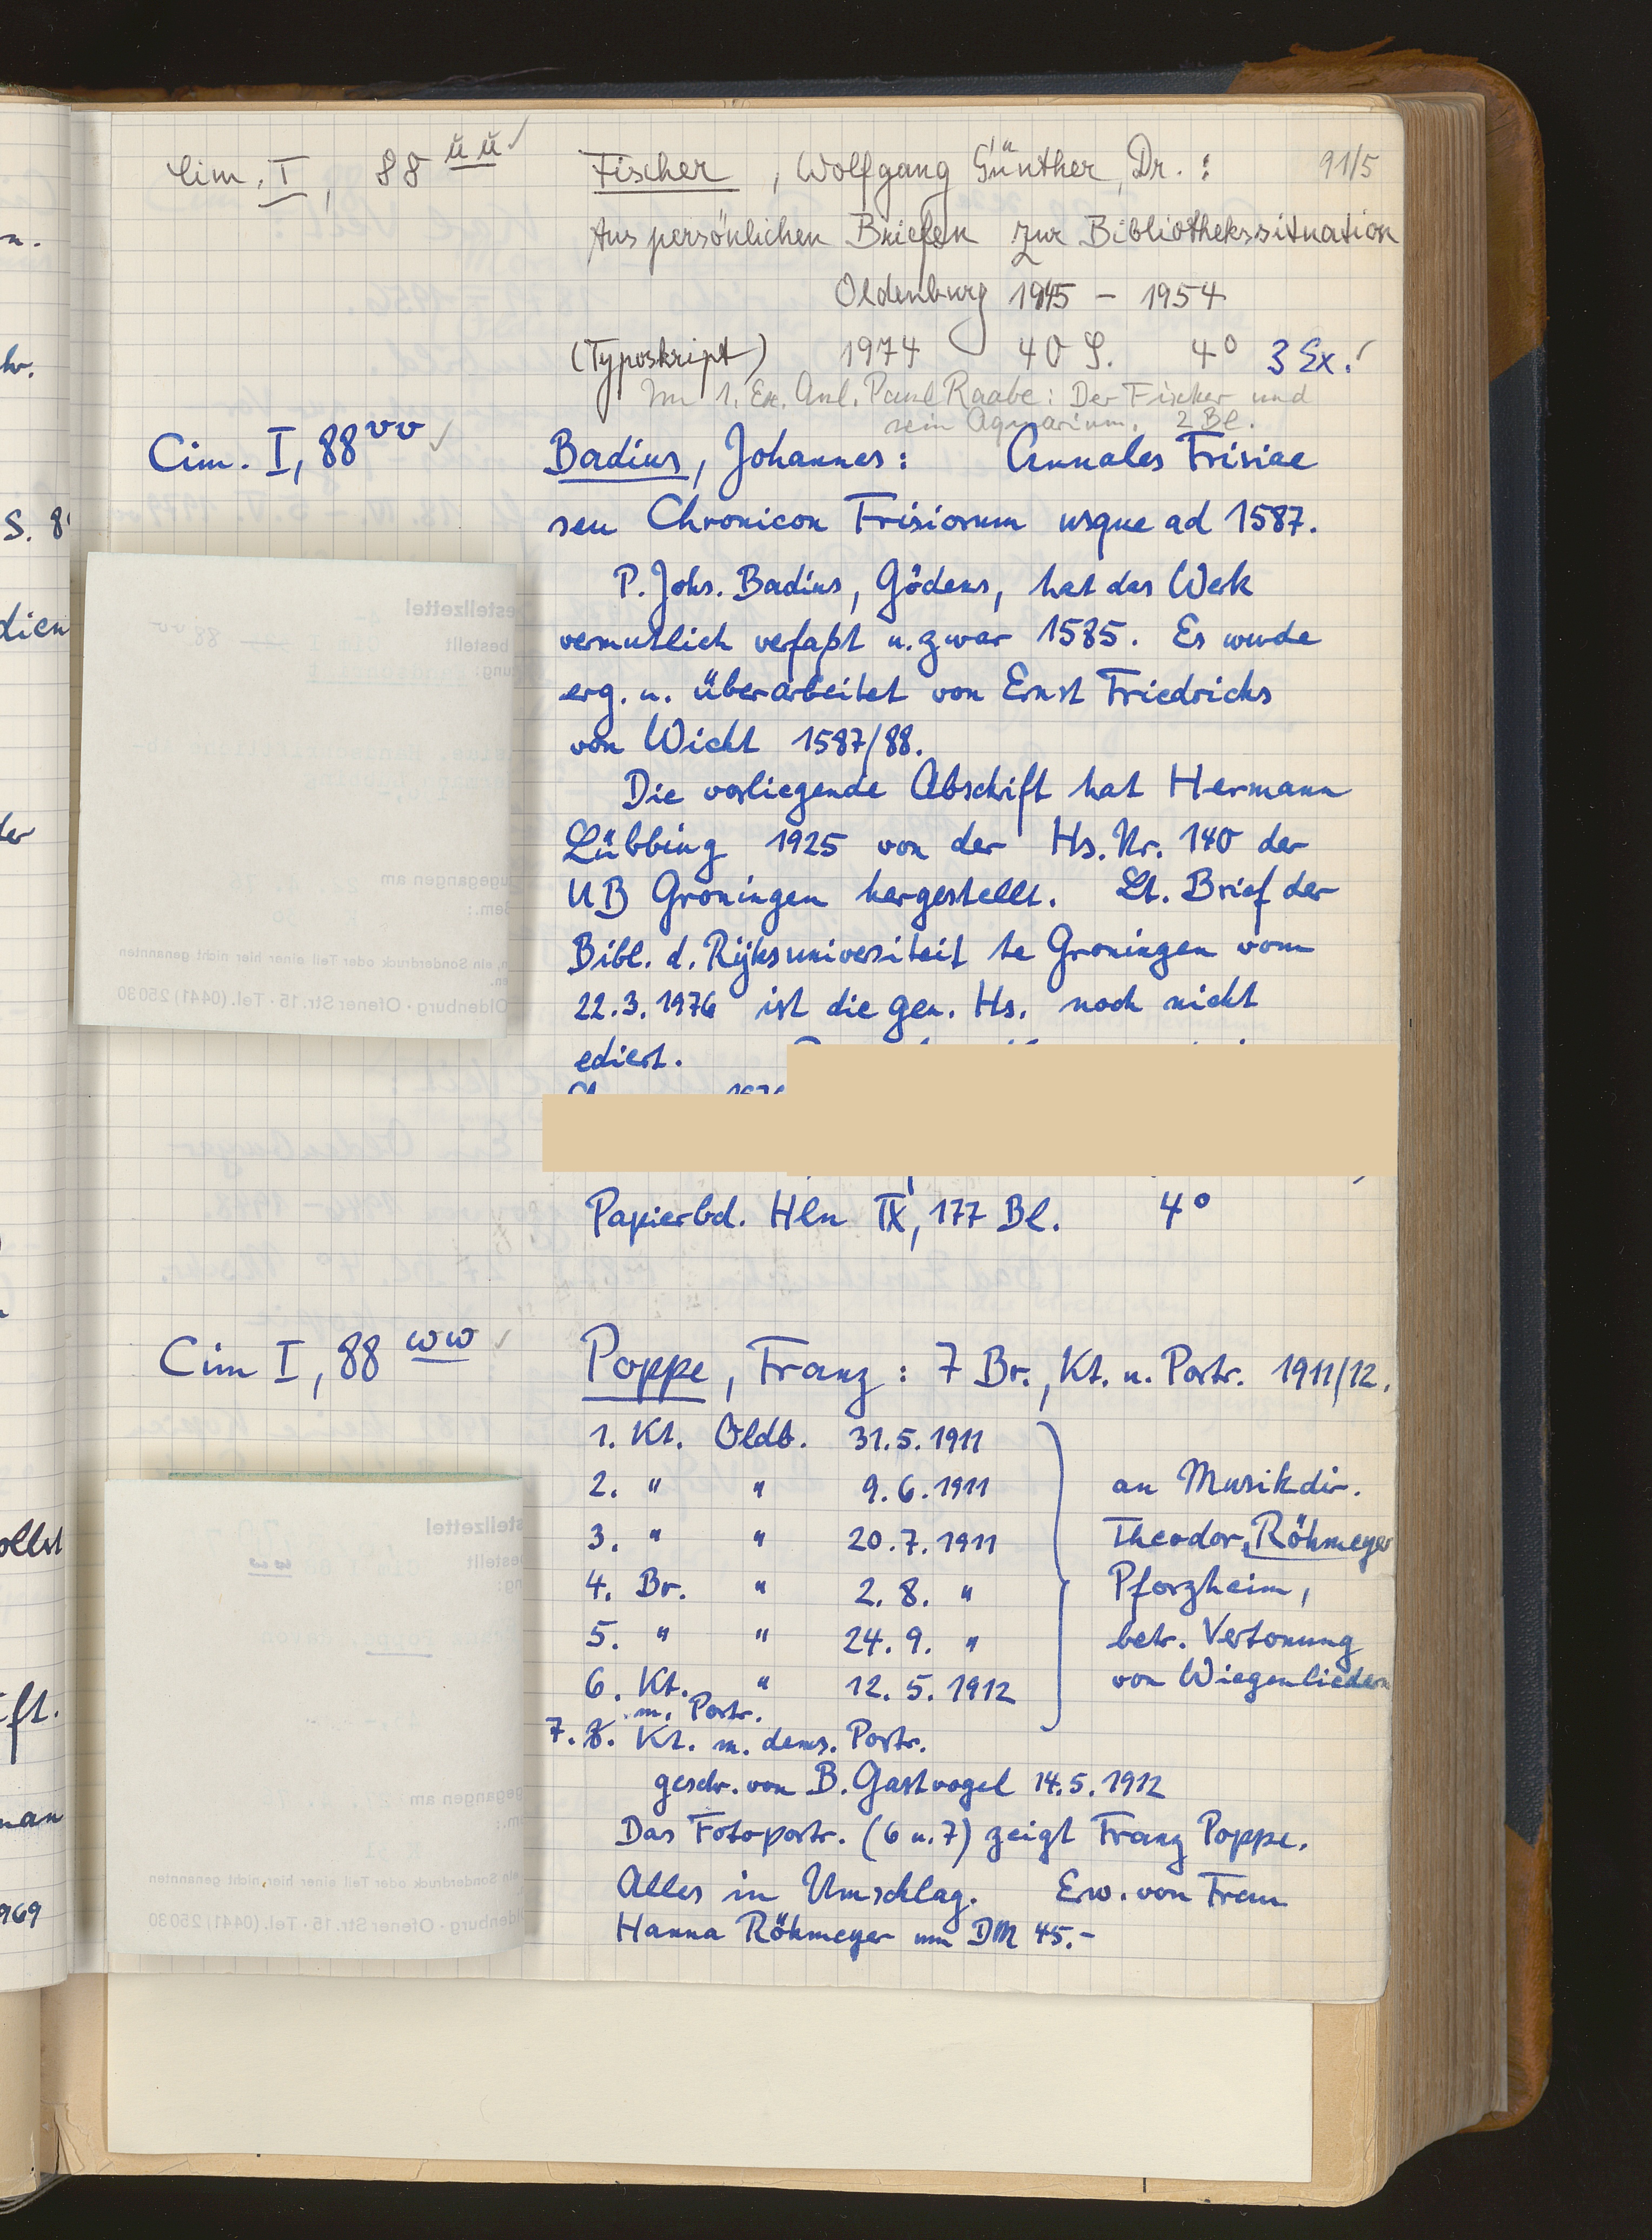 Cim. I, 88 ŭŭ ✓ Fischer, Wolfgang Günther, Dr.: 91/5
Aus persönlichen Briefen zur Bibliothekssituation
Oldenburg 1945 – 1954
(Typoskript) 1974 40 S. 4° 3 Ex.
Im 1. Ex. Anl. Paul Raabe: Der Fischer und
sein Aquarium. 2 Bl.
Cim. I, 88 vv ✓ Badius, Johannes: Annales Frisiae
seu Chronicon Frisiorum usque ad 1587.
P. Johs. Badius, Gödens, hat das Werk
vermutlich verfaßt u. zwar 1585. Es wurde
erg. u. überarbeitet von Ernst Friedrichs
von Wicht 1587/88.
Die vorliegende Abschrift hat Hermann
Lübbing 1925 von der Hs. Nr. 140 der
UB Groningen hergestellt. Lt. Brief der
Bibl. d. Rijksuniversiteit te Groningen vom
22.3.1976 ist die gen. Hs. noch nicht
ediert.
Papierbd. Hln IX, 177 Bl. 4°
Cim I, 88 ww ✓ Poppe, Franz: 7 Br., Kt. u. Portr. 1911/12.
1. Kt. Oldb. 31.5.1911
2. " " 9.6.1911 an Musikdir.
3. " " 20.7.1911 Theodor Röhmeyer
4. Br. " 2.8. " Pforzheim,
5. " " 24.9. " betr. Vertonung
6. Kt. " 12.5.1912 von Wiegenliedern
m. Portr.
7. Kt. m. dems. Portr.
geschr. von B. Gastvogel 14.5.1912
Das Fotoportr. (6 u. 7) zeigt Franz Poppe.
Alles in Umschlag. Erw. von Frau
Hanna Röhmeyer um DM 45.-